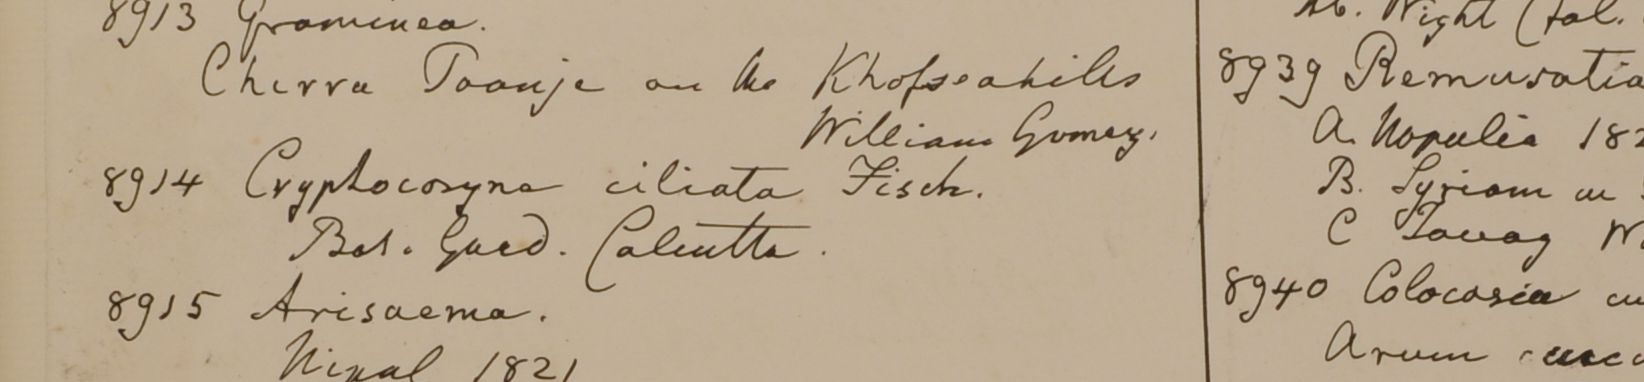 8913 Graminea.
Cherra Poonje on the Khofseahills
William Gomez.
8914 Cryptocoryne ciliata Fisch.
Bot. Gard. Calcutta.
8915 Arisaema.
Nipal 1821
Wight
8939 Remusatia
A. Napalia 182
B. Syriam
C Tavay W
8940 Colocasia
Arum